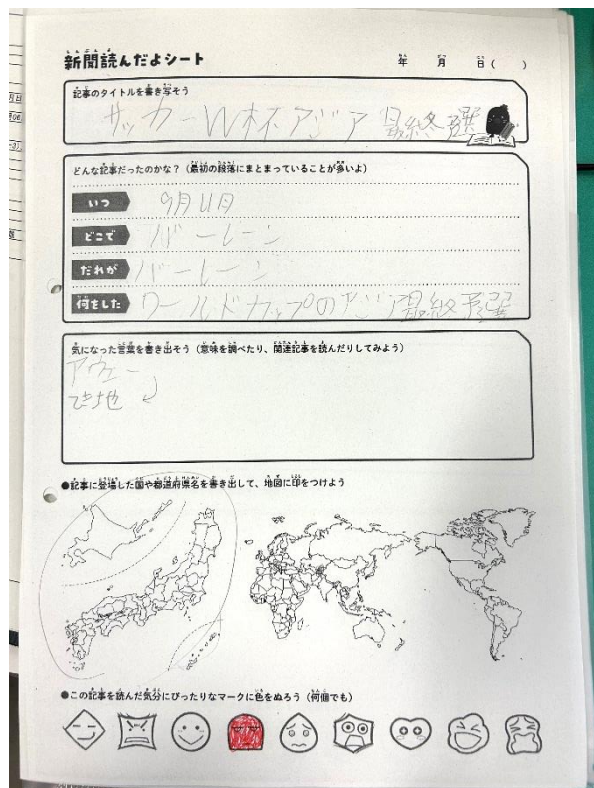 新聞読んだよシート
年 月 日( )
記事のタイトルを書き写そう
サッカーW杯アジア最終予選
どんな記事だったのかな?(最初の段落にまとまっていることが多いよ)
いつ 9月11日
どこで バーレーン
だれが バーレーン
何をした ワールドカップのアジア最終予選
気になった言葉を書き出そう(意味を調べたり、関連記事を読んだりしてみよう)
アウェー
●記事に登場した国や都道府県名を書き出して、地図に印をつけよう
●この記事を読んだ気分にぴったりなマークに色をぬろう(何個でも)